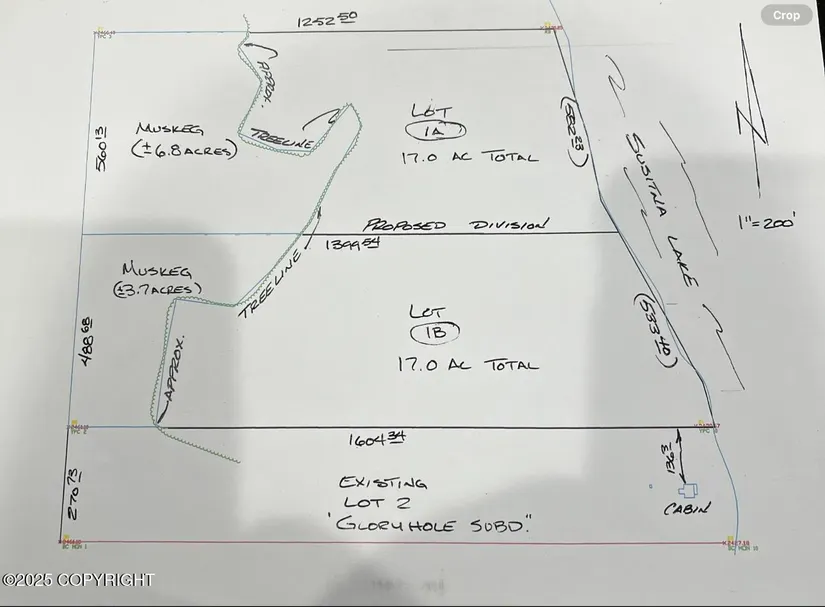 Crop
1252 50
APPROX.
LOT
1A
17.0 AC TOTAL
MUSKEG
(±6.8 ACRES)
TREELINE
560 13
(582 28)
SUSITNA LAKE
1"=200'
PROPOSED DIVISION
1399 54
MUSKEG
(±3.7 ACRES)
TREELINE
LOT
1B
17.0 AC TOTAL
488 68
APPROX.
(533 40)
1604 34
270 73
136 3
EXISTING
LOT 2
"GLORYHOLE SUBD."
CABIN
©2025 COPYRIGHT